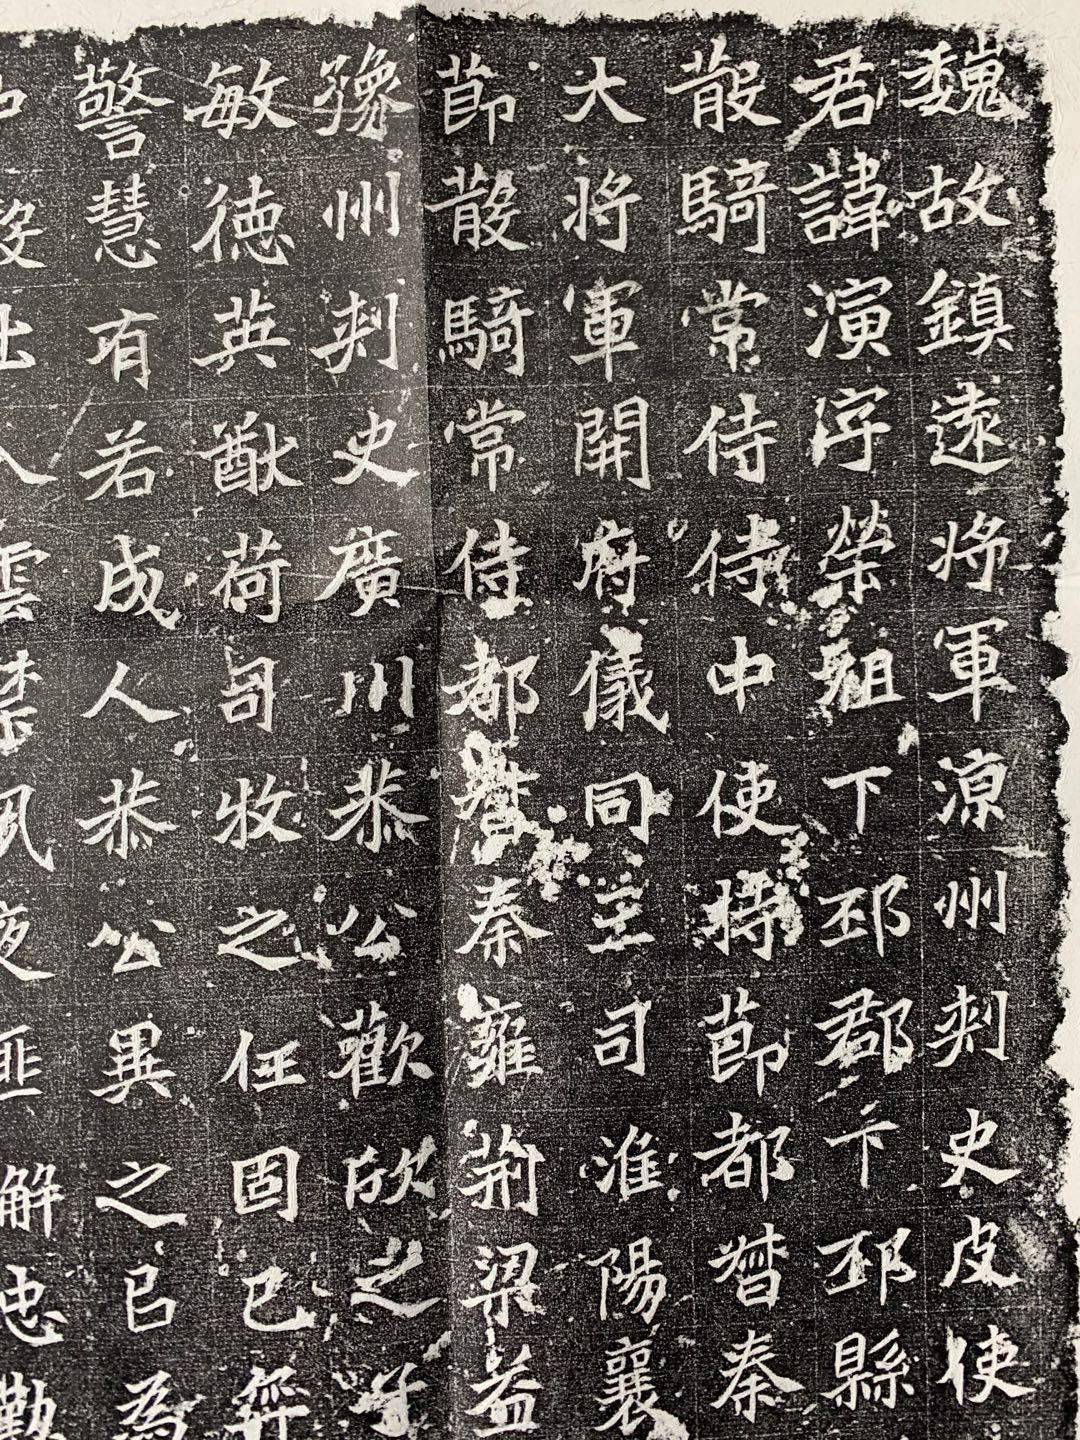 魏故鎮遠將軍涼州刾史皮使
君諱演字榮祖下邳郡下邳縣
散騎常侍侍中使持節都督秦
大將軍開府儀同三司淮陽襄
節散騎常侍都督秦雍荊梁益
豫州刾史廣川恭公歡欣之子
敏德英猷荷司牧之任固已
警慧有若成人恭公異之曰為
出入雲禁夙夜匪解忠勤